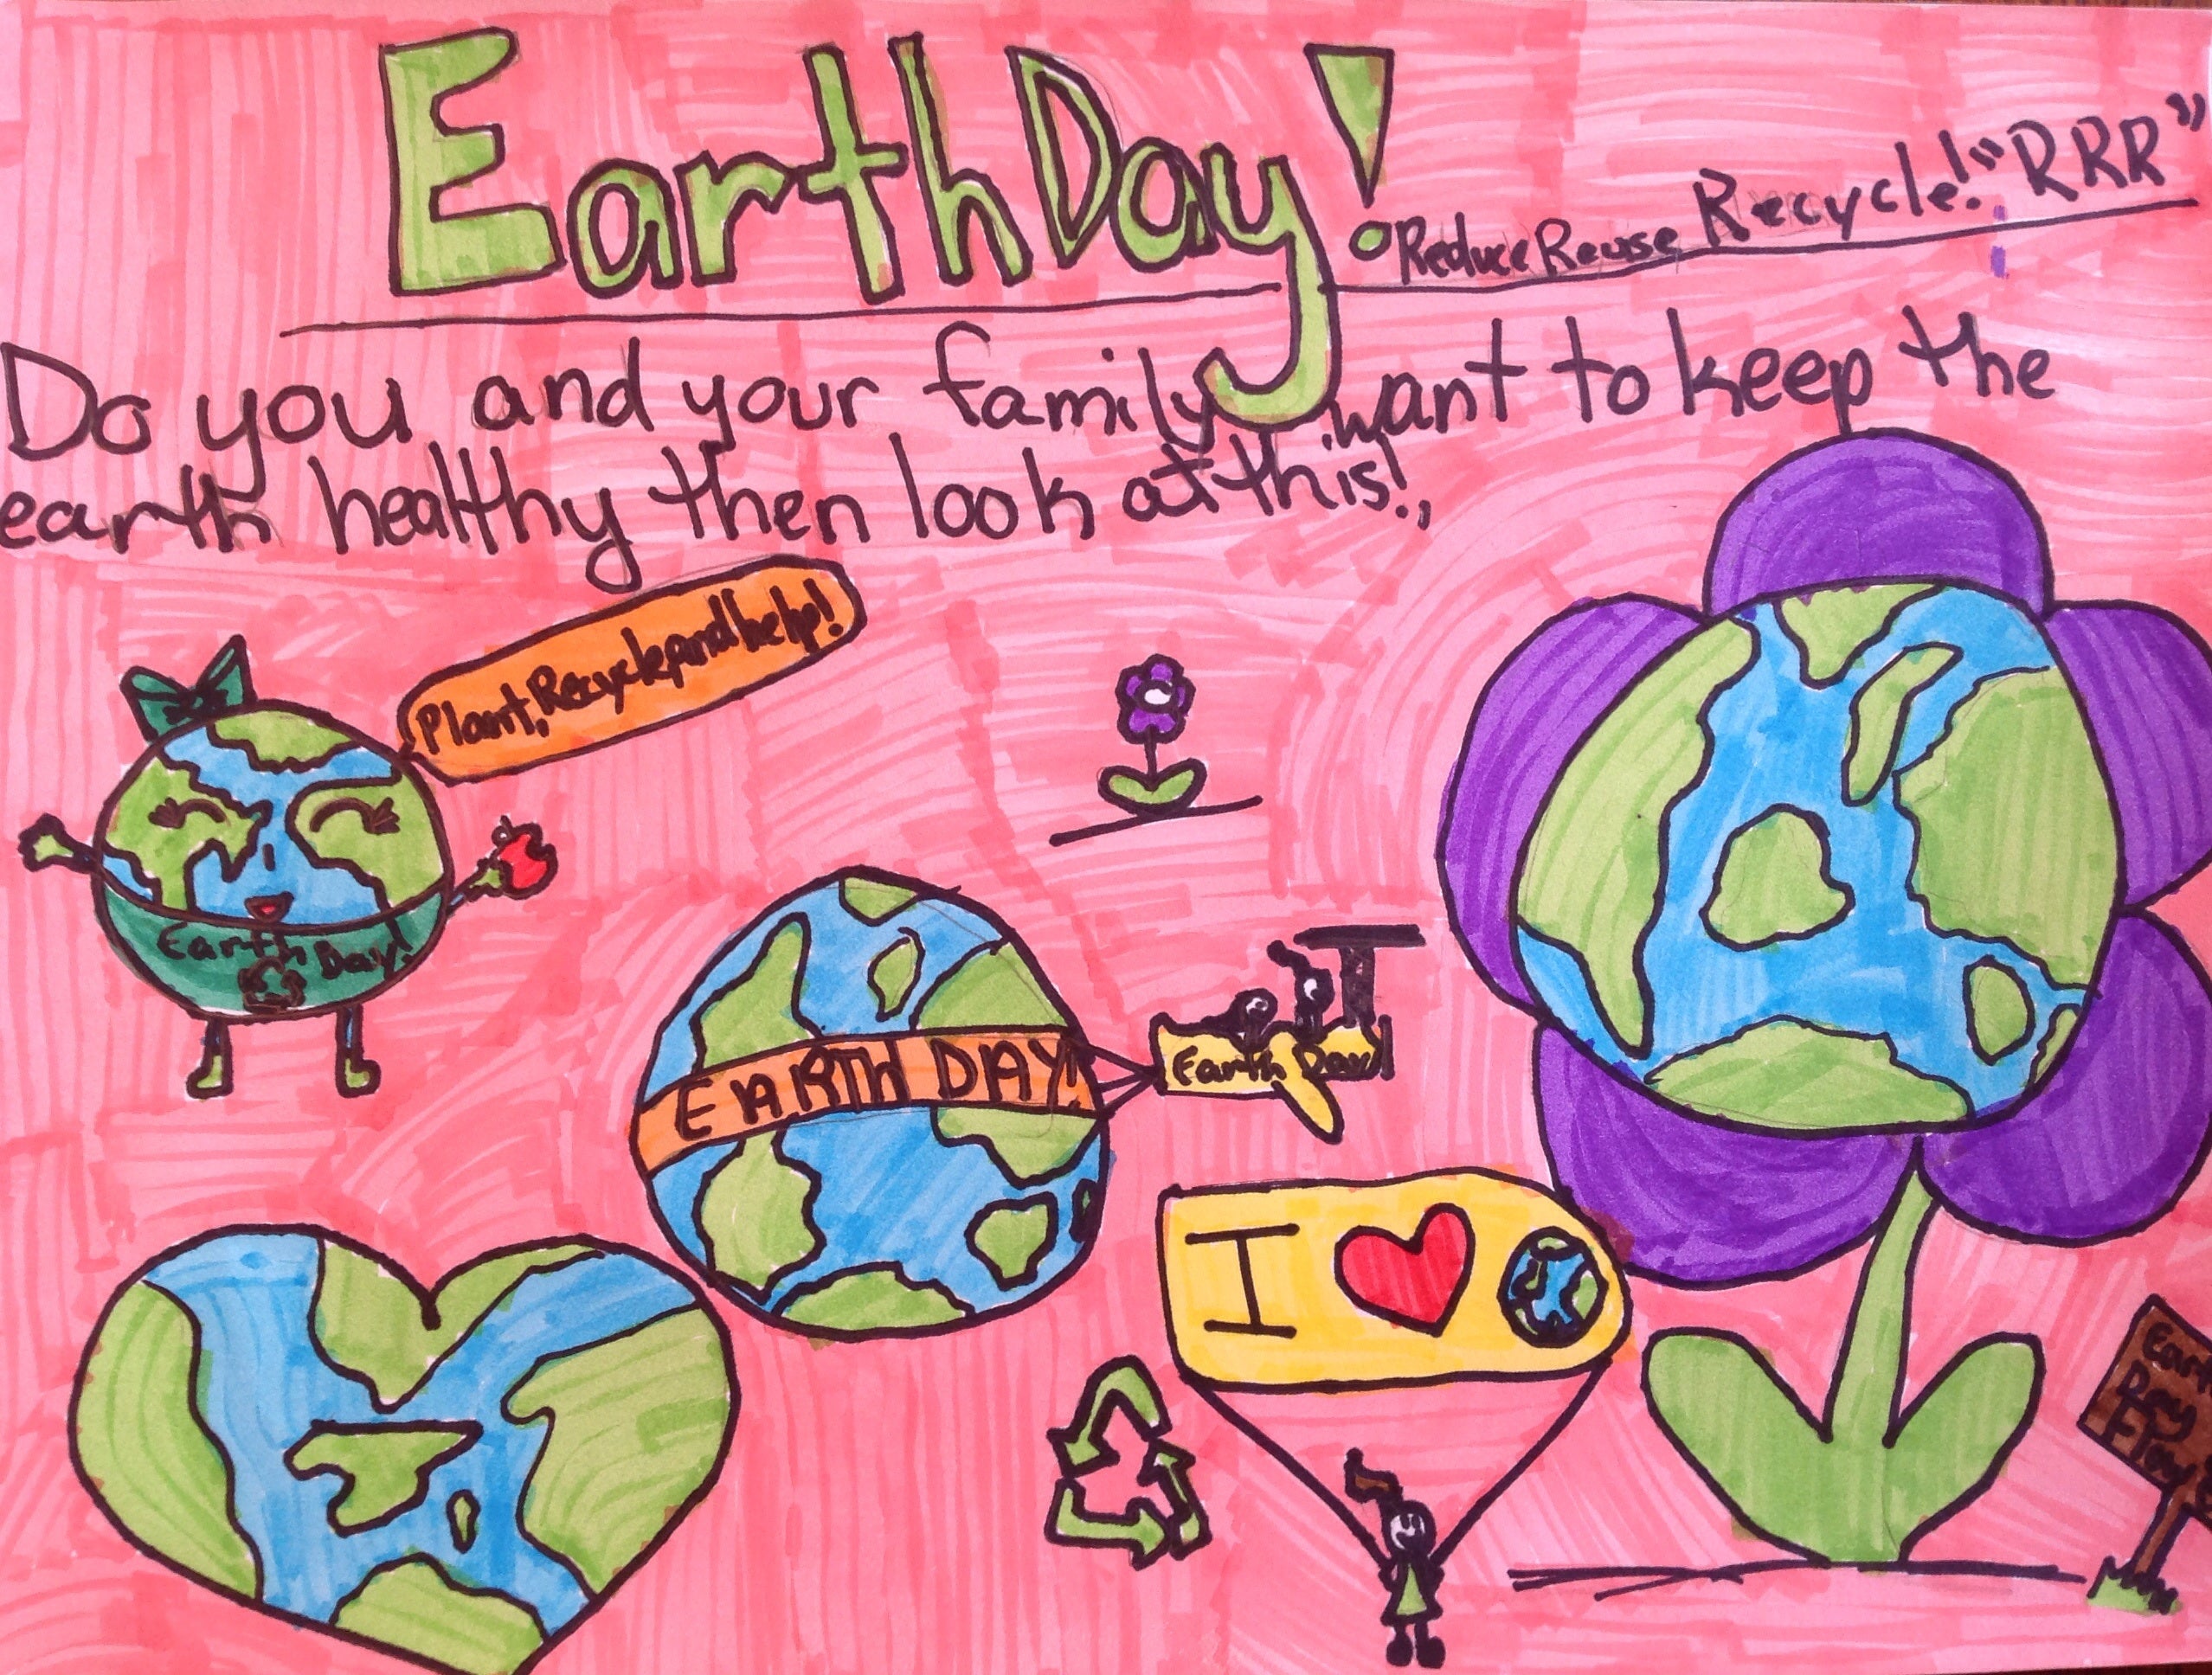 Earth Day!
Reduce Reuse Recycle! "RRR"
Do you and your family want to keep the
earth healthy then look at this!
Plant, Recycle, and help!
Earth Day!
EARTH DAY!
Earth Day!
I
Day